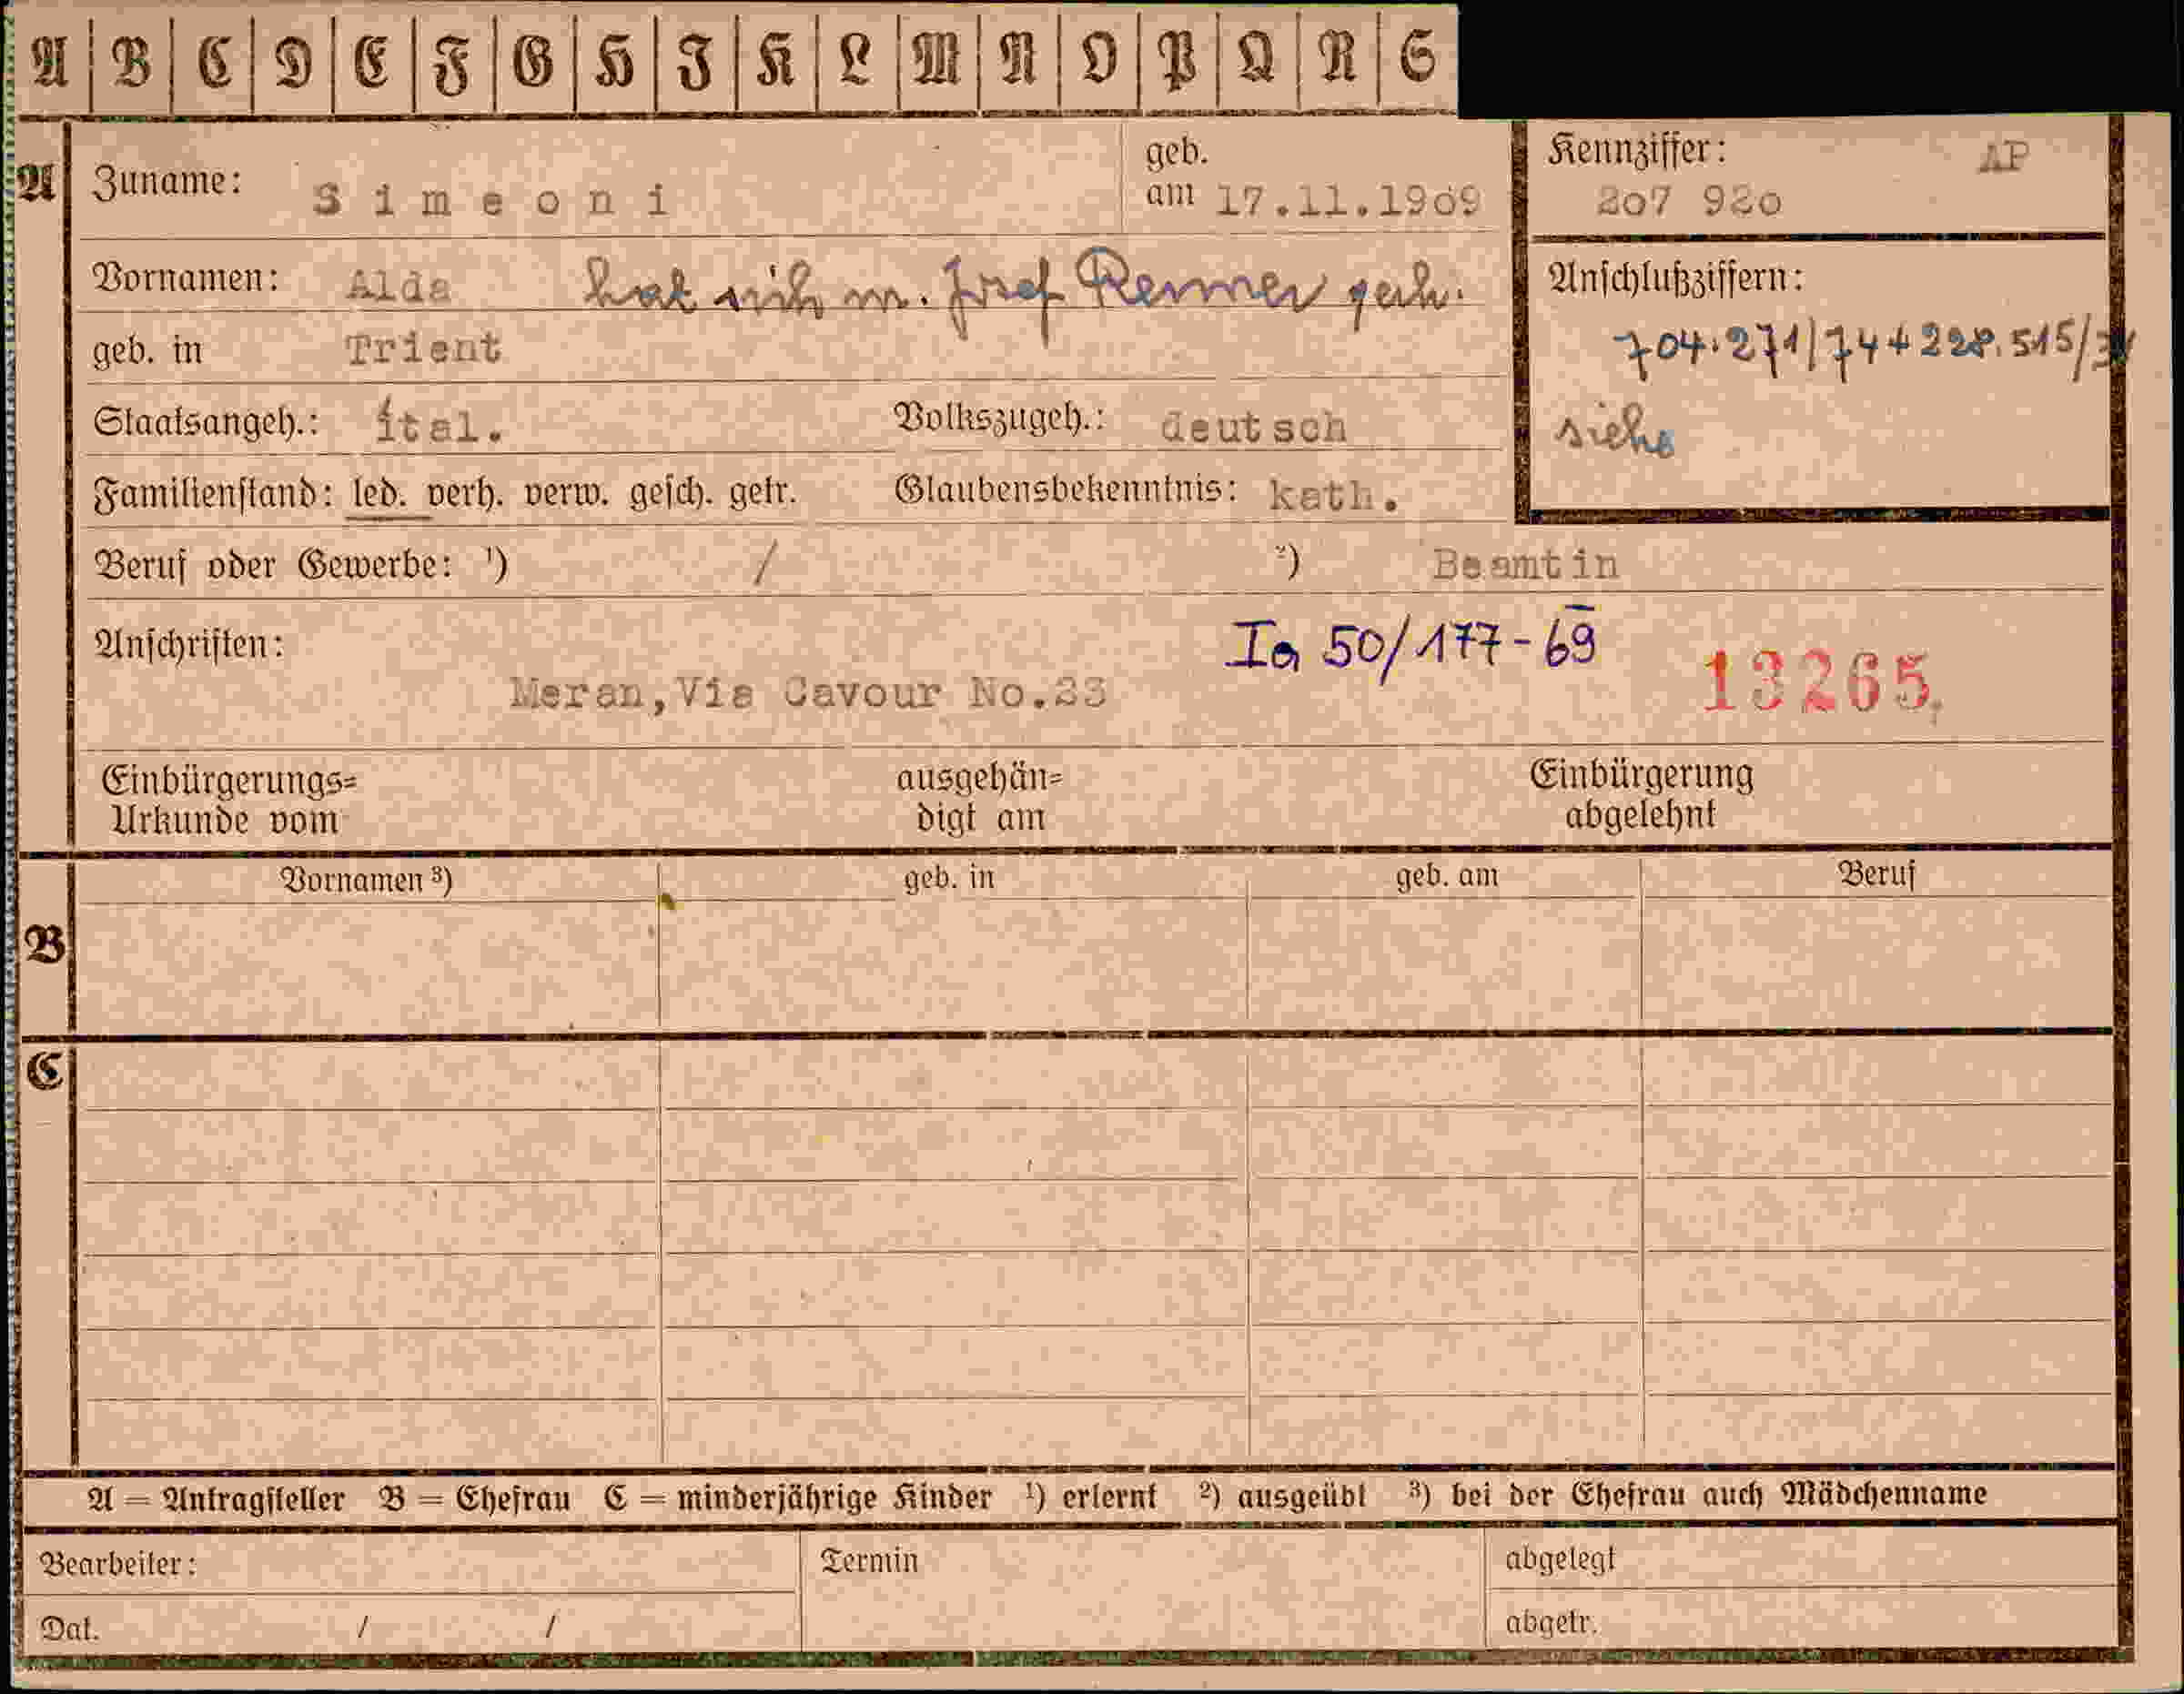 A B C D E F G H I K L M N O P Q R S
A Zuname: Simeoni geb. am 17.11.1909 Kennziffer: AP 207 920
Vornamen: Alda hat sich m. Josef Renner
geb. in Trient
Anschlußziffern:
704.271/74+228.515/
siehe
Staatsangeh.: ital. Volkszugeh.: deutsch
Familienstand: led. verh. verw. gesch. getr. Glaubensbekenntnis: kath.
Beruf oder Gewerbe: ¹) / ²) Beamtin
Anschriften: Ia 50/177-69
Meran, Via Cavour No.23 13265
Einbürgerungs= ausgehän= Einbürgerung
Urkunde vom digt am abgelehnt
Vornamen ³) geb. in geb. am Beruf
B
C
A = Antragsteller B = Ehefrau C = minderjährige Kinder ¹) erlernt ²) ausgeübt ³) bei der Ehefrau auch Mädchenname
Bearbeiter: Termin abgelegt
Dat. / / abgetr.